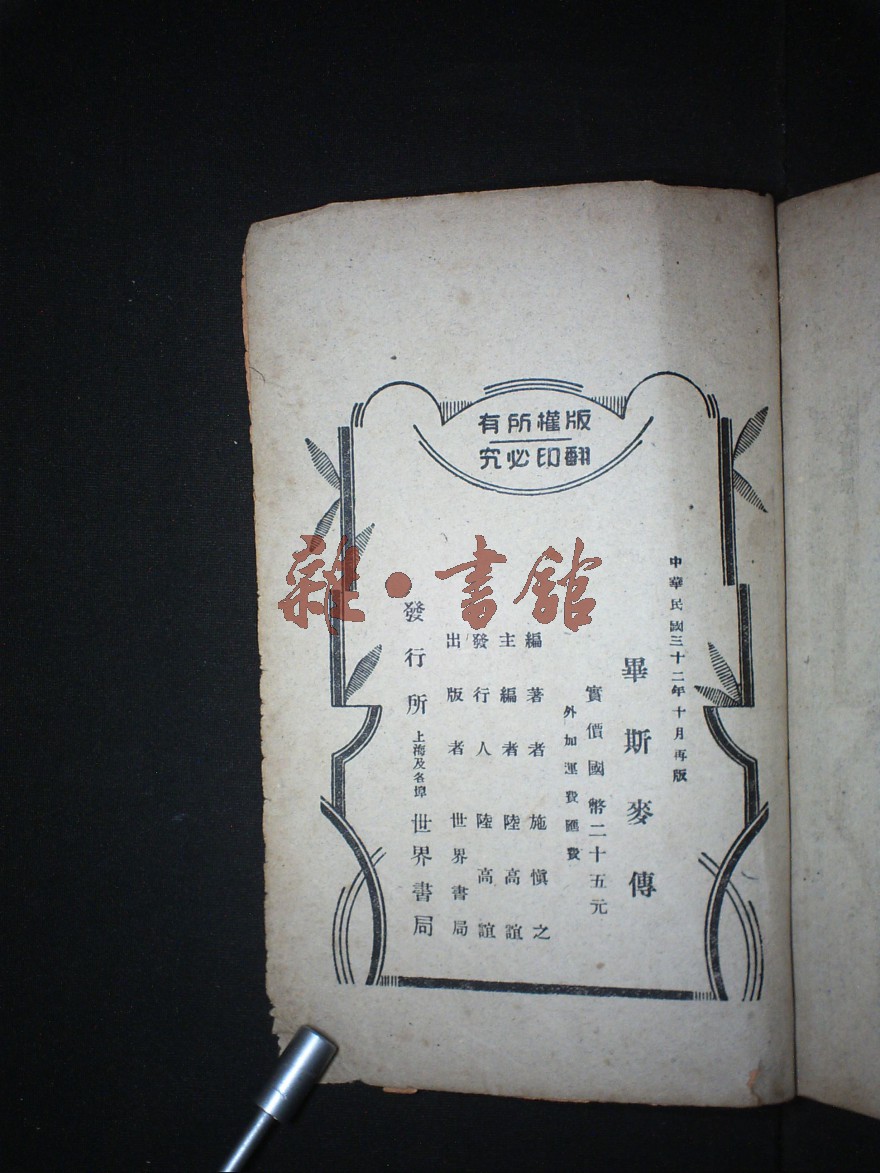 版權所有
翻印必究
中華民國三十二年十月再版
畢斯麥傳
實價國幣二十五元
外加運費匯費
編著者 施愼之
主編者 陸高誼
發行人 陸高誼
出版者 世界書局
發行所 上海及各埠 世界書局
雜·書館